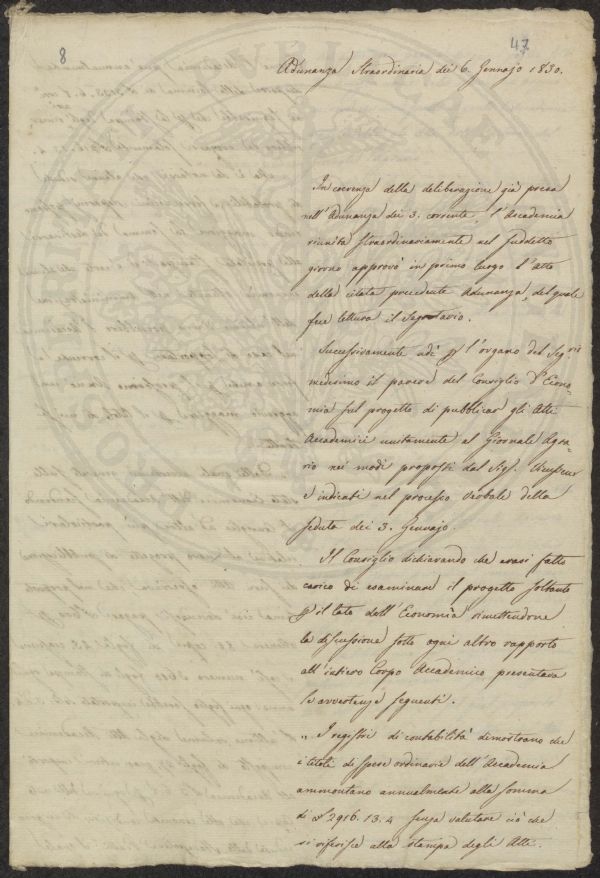 8
47
Adunanza Straordinaria dei 6. Gennajo 1830.
In coerenza della deliberazione già presa
nell'Adunanza dei 3. corrente, l'Accademia
riunita straordinariamente nel suddetto
giorno approvò in primo luogo l'Atto
della citata precedente Adunanza, del quale
fece lettura il Segretario.
Successivamente udì p l'organo del Segrio
medesimo il parere del Consiglio d'Econo-
mia sul progetto di pubblicar gli Atti
Accademici unitamente al Giornale Agra-
rio nei modi proposti dal Sigr. Vieusseux
e indicati nel processo verbale della
seduta dei 3. Gennajo.
Il Consiglio dichiarando che erasi fatto
carico di esaminare il progetto soltanto
p il lato dell'Economia rimettendone
la discussione sotto ogni altro rapporto
all'intiero Corpo Accademico presentava
le avvertenze seguenti.
„ I registri di contabilità dimostrano che
i titoli di spese ordinarie dell'Accademia
ammontano annualmente alla somma
di 2916. 13. 4 senza valutare ciò che
si riferisce alla stampa degli Atti.